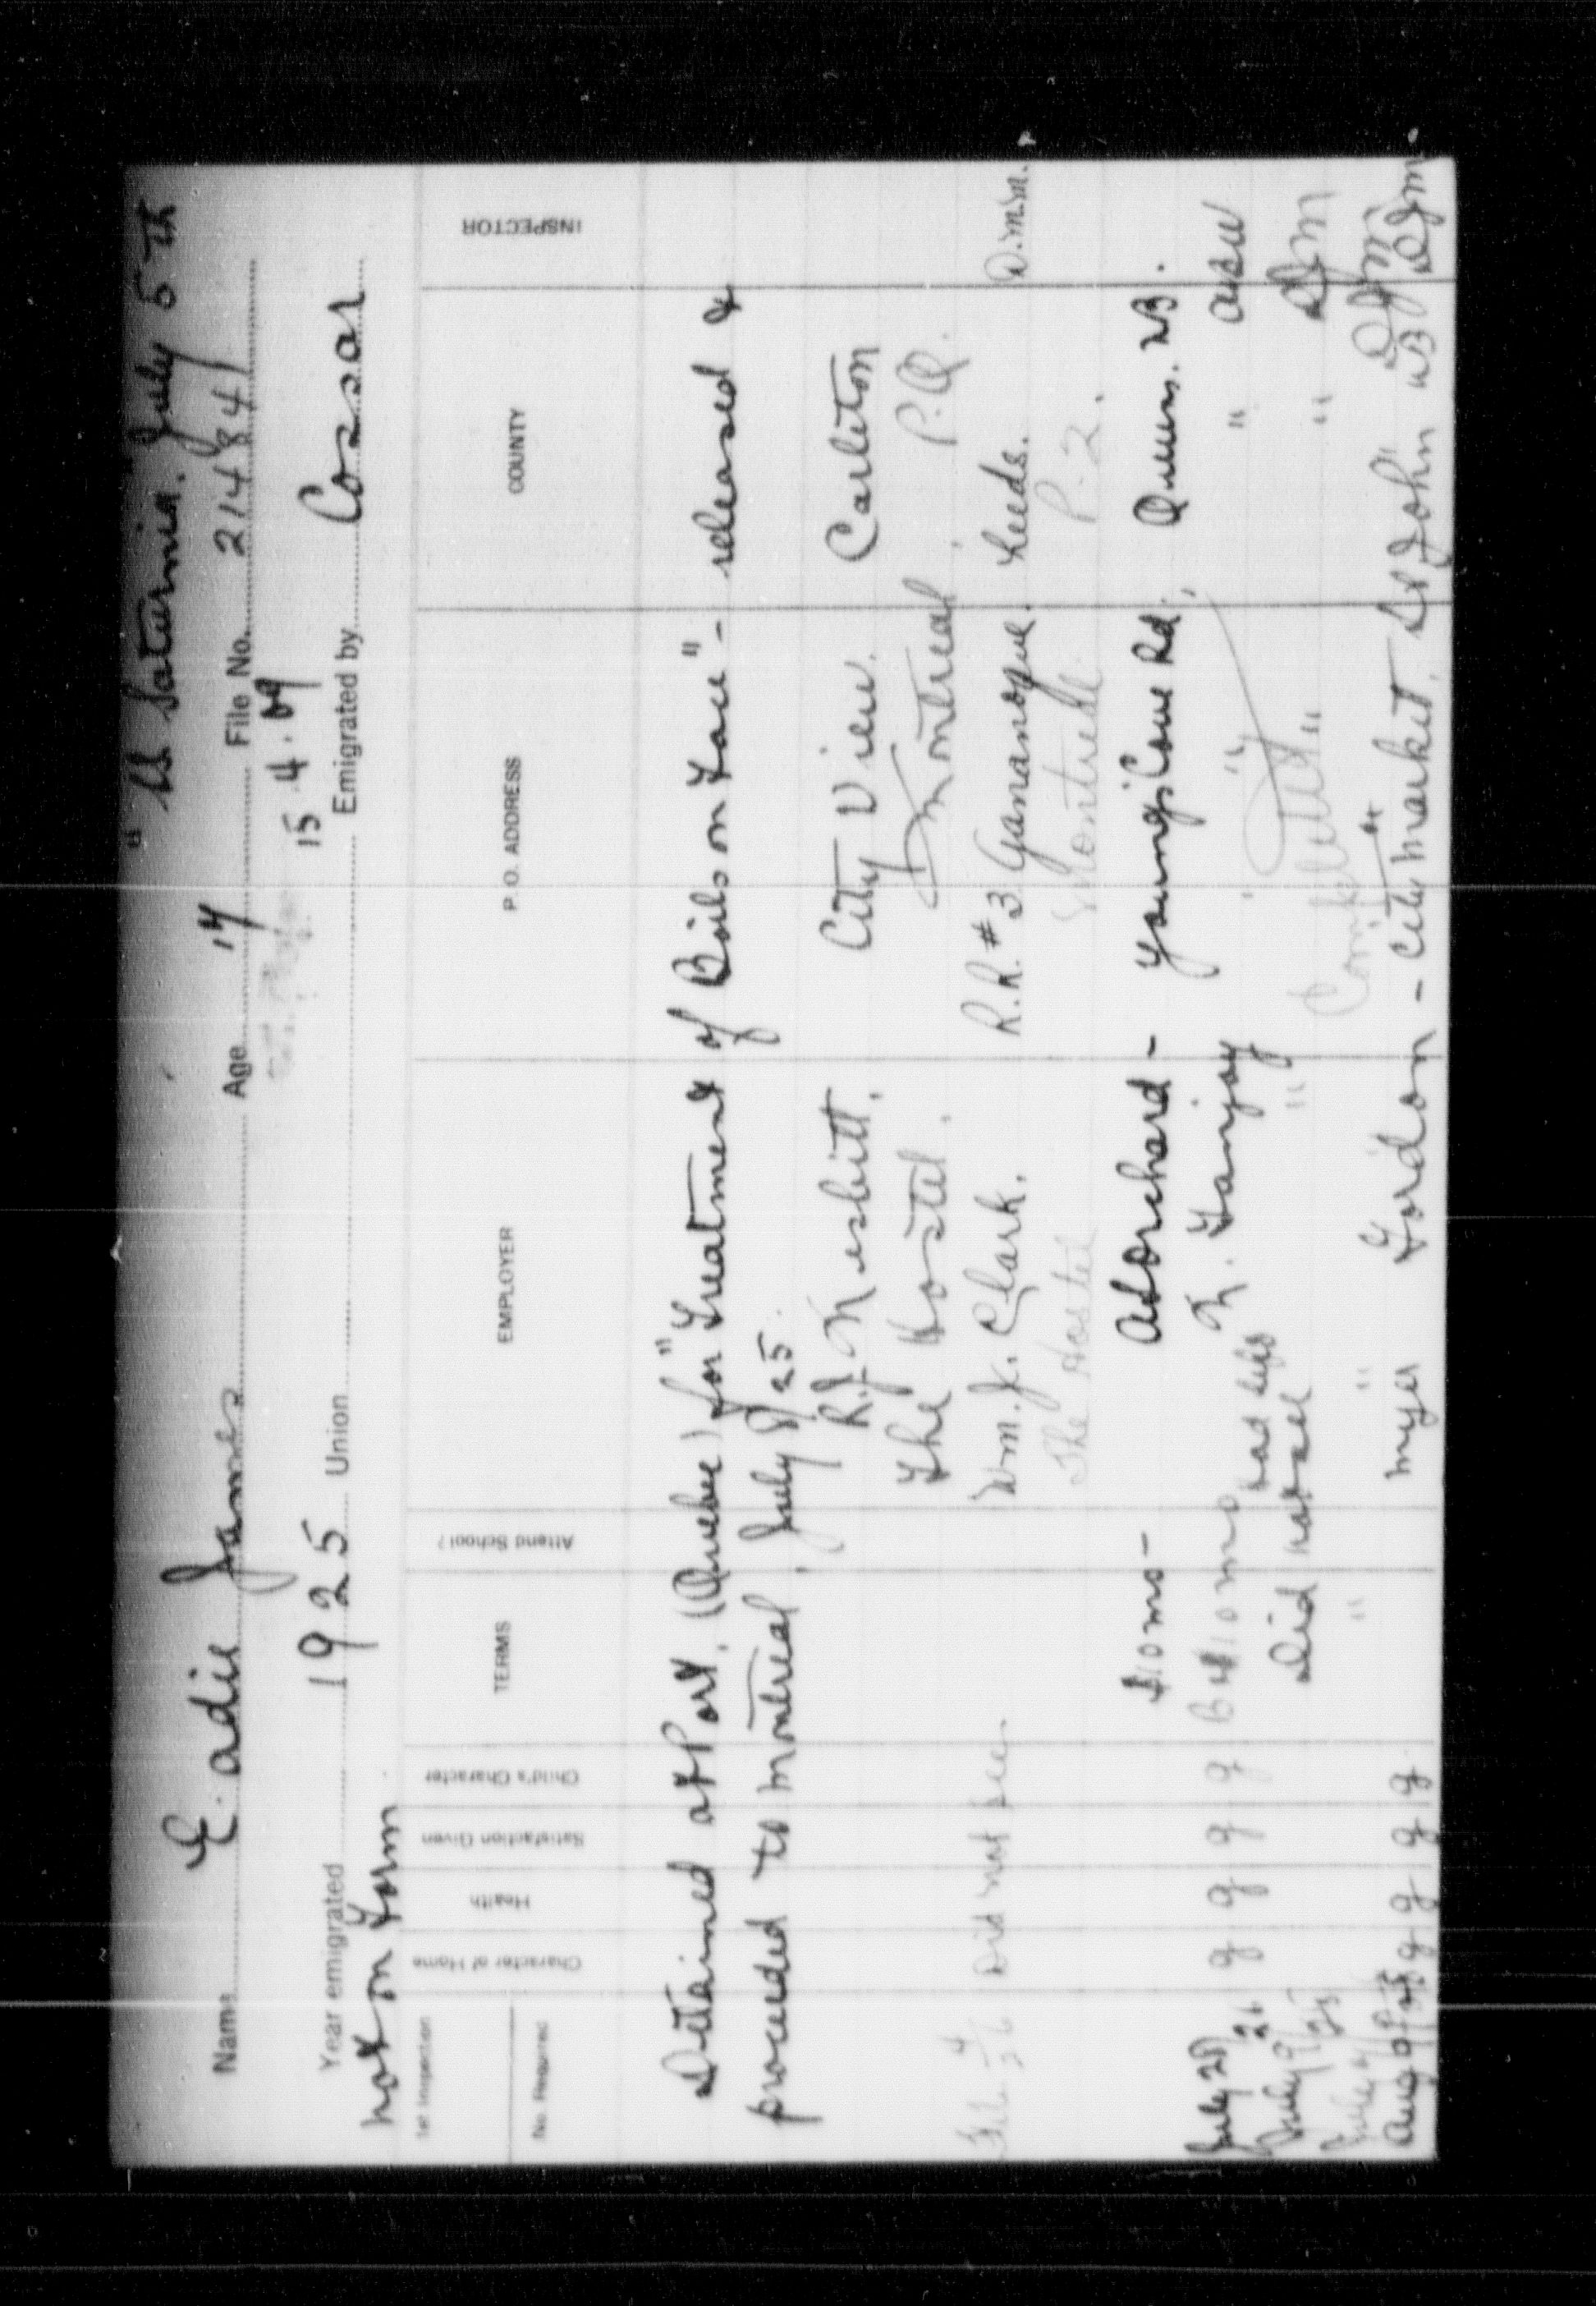 "SS Saturnia. July 5th
Name E. adie James Age 17 File No. 214841
15.4.09
Year emigrated 1925 Union Emigrated by Cossar
not on Form
1st Inspection
No. Required
Character of Home
Health
Satisfaction Given
Child's Character
TERMS
Attend School?
EMPLOYER
P.O. ADDRESS
COUNTY
INSPECTOR
Detained at Port, (Quebec) for "Treatment of Boils on Face" - released &
proceeded to Montreal, July 8/25.
R.J. Nesbitt, City View. Carleton
The Hostel, Montreal, P.Q.
Did not see Wm. J. Clark. R.R. #3 Gananoque. Leeds. D.M.M.
The Hostel Montreal P.Q.
$10 mo - Orchard - Youngs Cove Rd, Queens. NB.
July 28 g g g g $10 mo N. Fanjoy " "
July 9/ had left
did not see " " " DJM
July " " Complete DJM
Aug 9 g g g g Myer Gordon - City Market, St John NB DJM